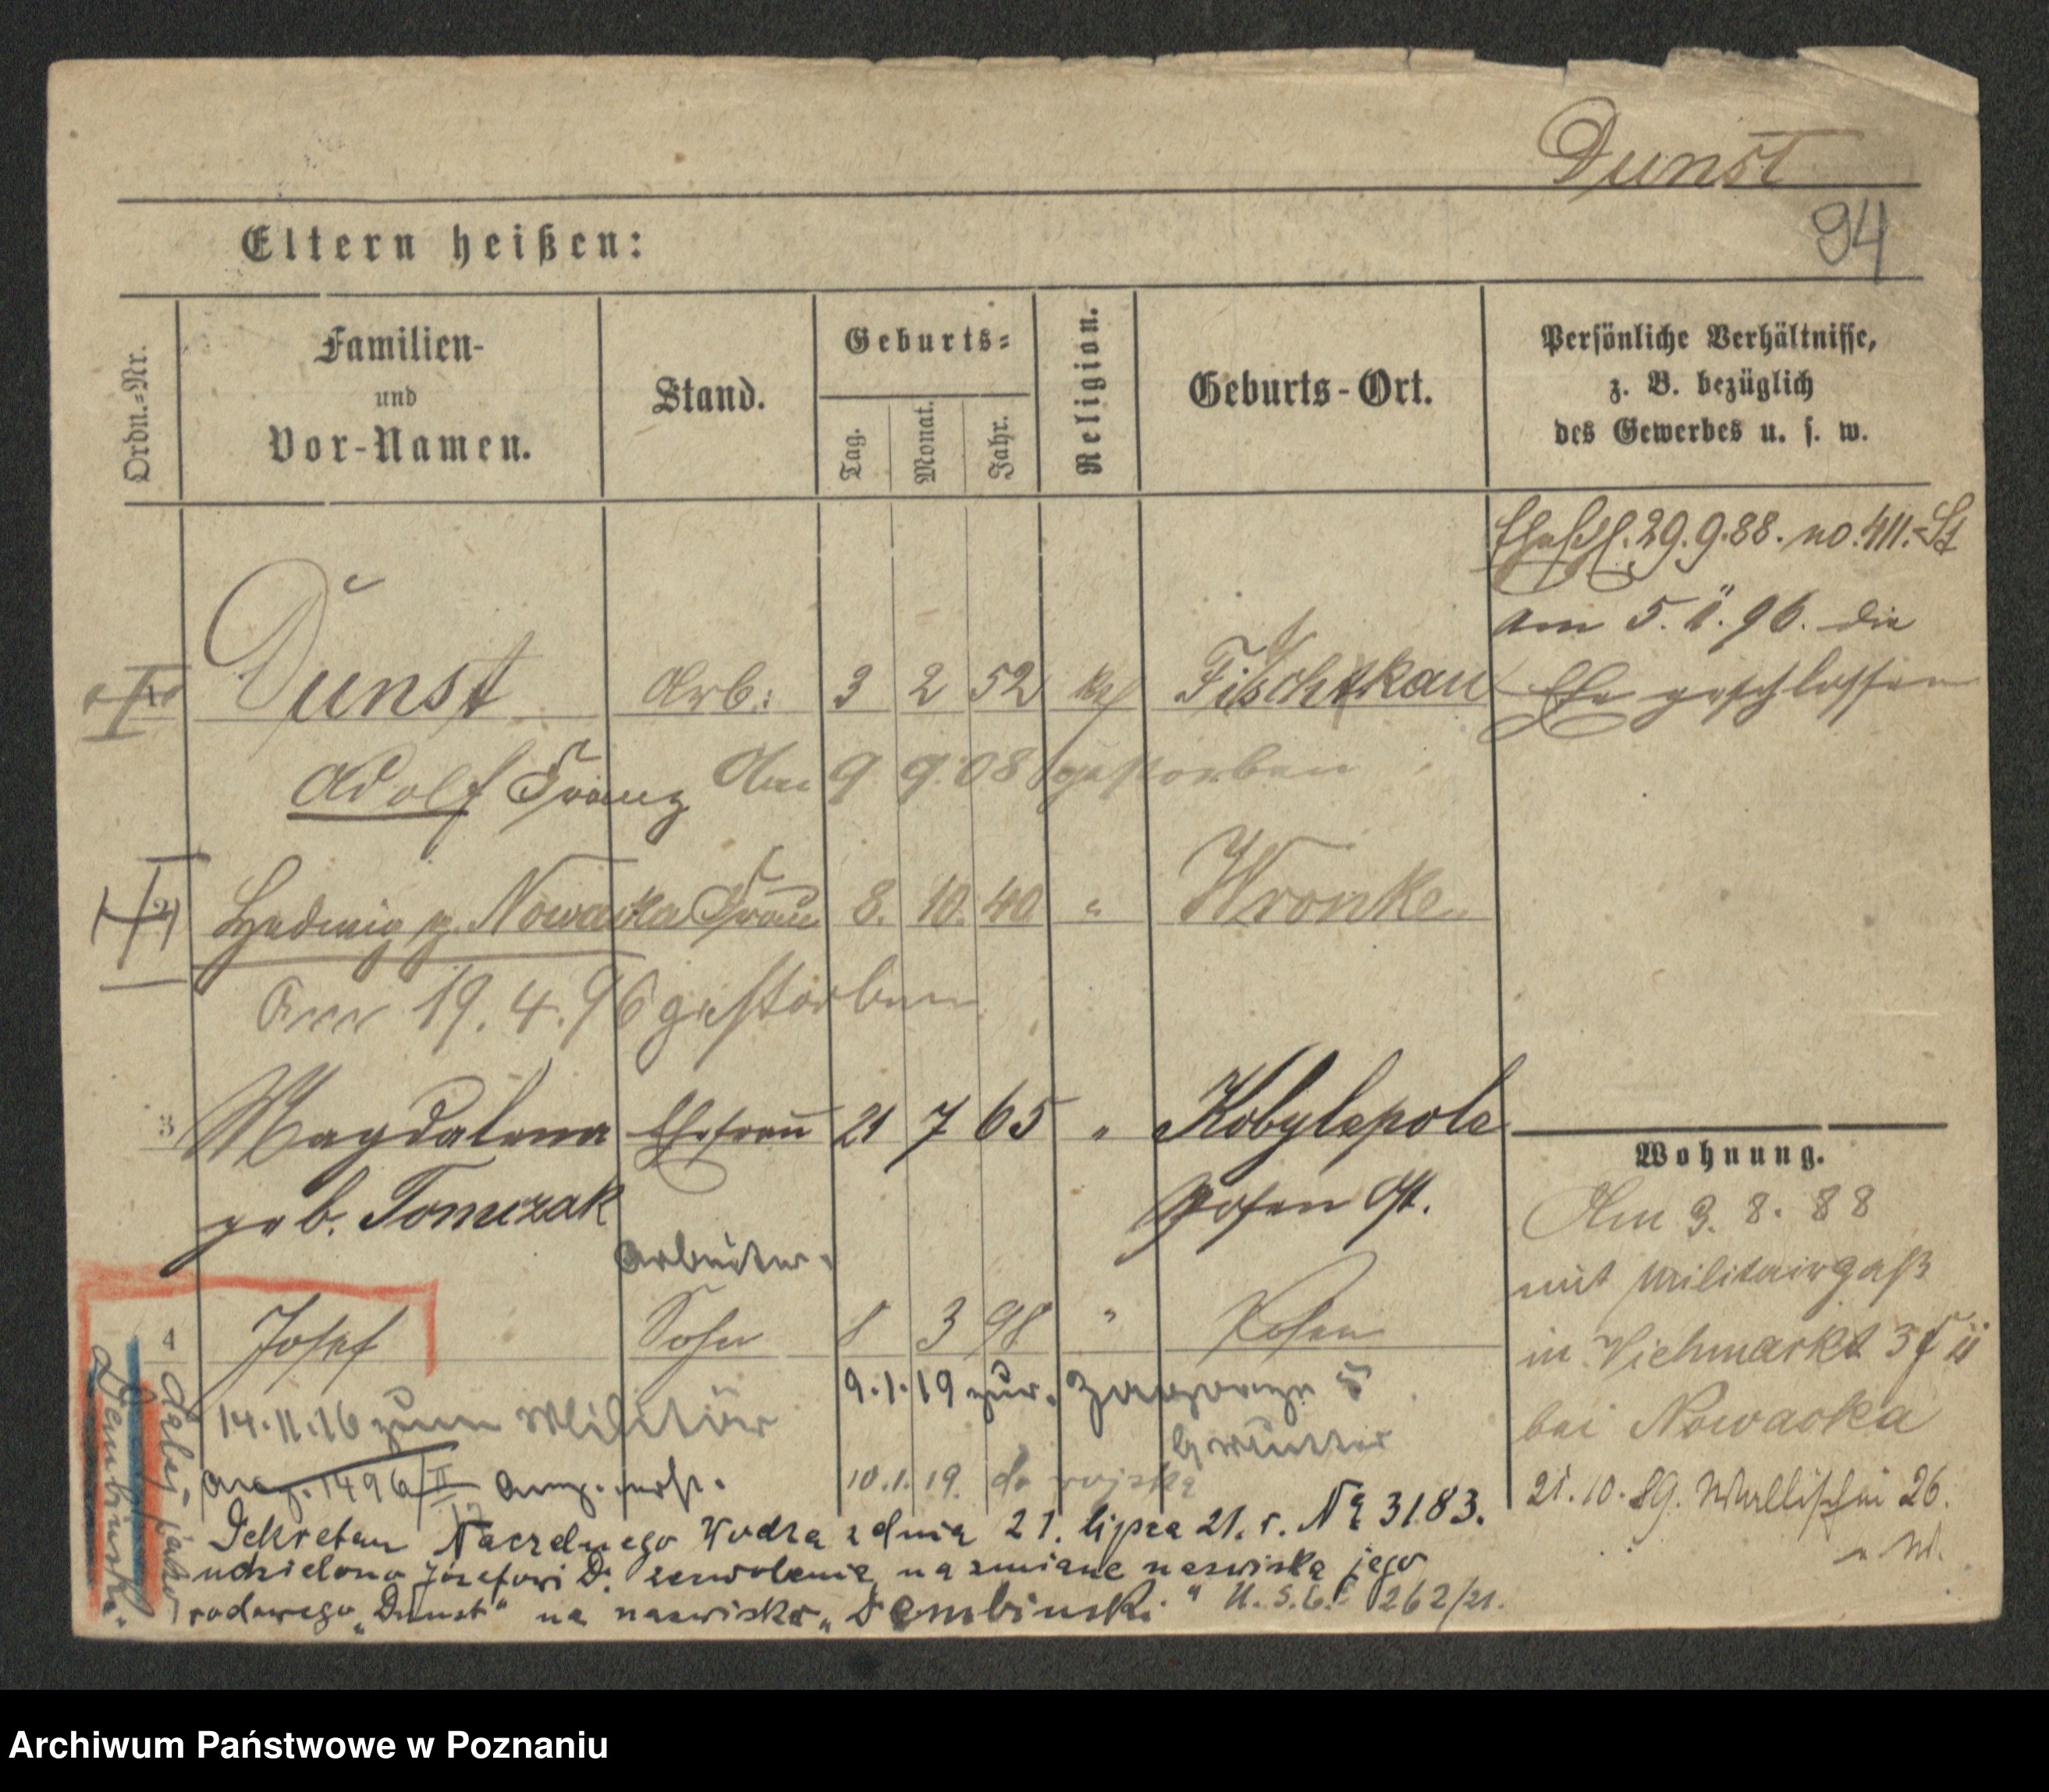 Dunst
94
Eltern heißen:
Ordn.-Nr.
Familien-
und
Vor-Namen.
Stand.
Geburts-
Tag.
Monat.
Jahr.
Religion.
Geburts-Ort.
Persönliche Verhältnisse,
z. B. bezüglich
des Gewerbes u. s. w.
29.9.88. no. 411.
am 5. 96. die
Ehe geschlossen
Dunst Arb. 3 2 52
Adolf Franz Am 9 9. 08 gestorben
2 Hedwig g. Nowacka Frau 8. 10. 40 " Wronke
Am 19.4.96 gestorben
3 Magdalena Ehefrau 21 7 65 " Kobylepole
geb. Tomczak Posen Ost.
Arbeiter.
4 Josef Sohn 8 3 98 " Posen
14.11.16 zum Militär
9.1.19 zur.
1496/II
10.1.19. do wojska
Dekretem Naczelnego Wodza z dnia 21. lipca 21. r. No 3183.
udzielono Józefowi D. zezwolenie na zmianę nazwiska jego
rodowego „Dunst" na nazwisko „Dembinski" U.S.C. 262/21.
dalej jako
Dembinski.
Wohnung.
Am 3. 8. 88
mit Militairpaß
in Viehmarkt
bei Nowacka
21.10.89. Wallischei 26.